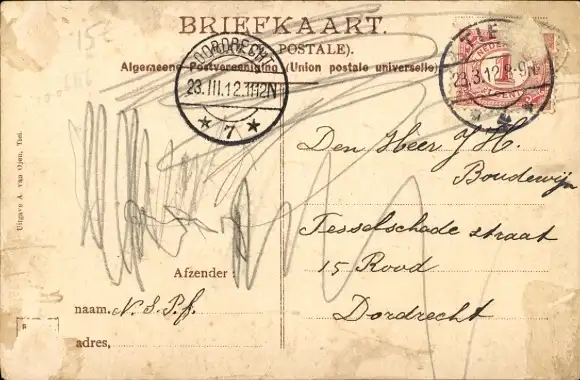 BRIEFKAART.
POSTALE).
Algemeene Postvereeniging (Union postale universelle)
DORDRECHT
23.III.12.11-12N
7
23.3.12.8-9N
Uitgave A. van Ojen, Tiel.
Den Heer J H.
Boudewijn
Tesselschade straat
15 Rood
Dordrecht
Afzender:
naam. N. S. P. f.
adres,